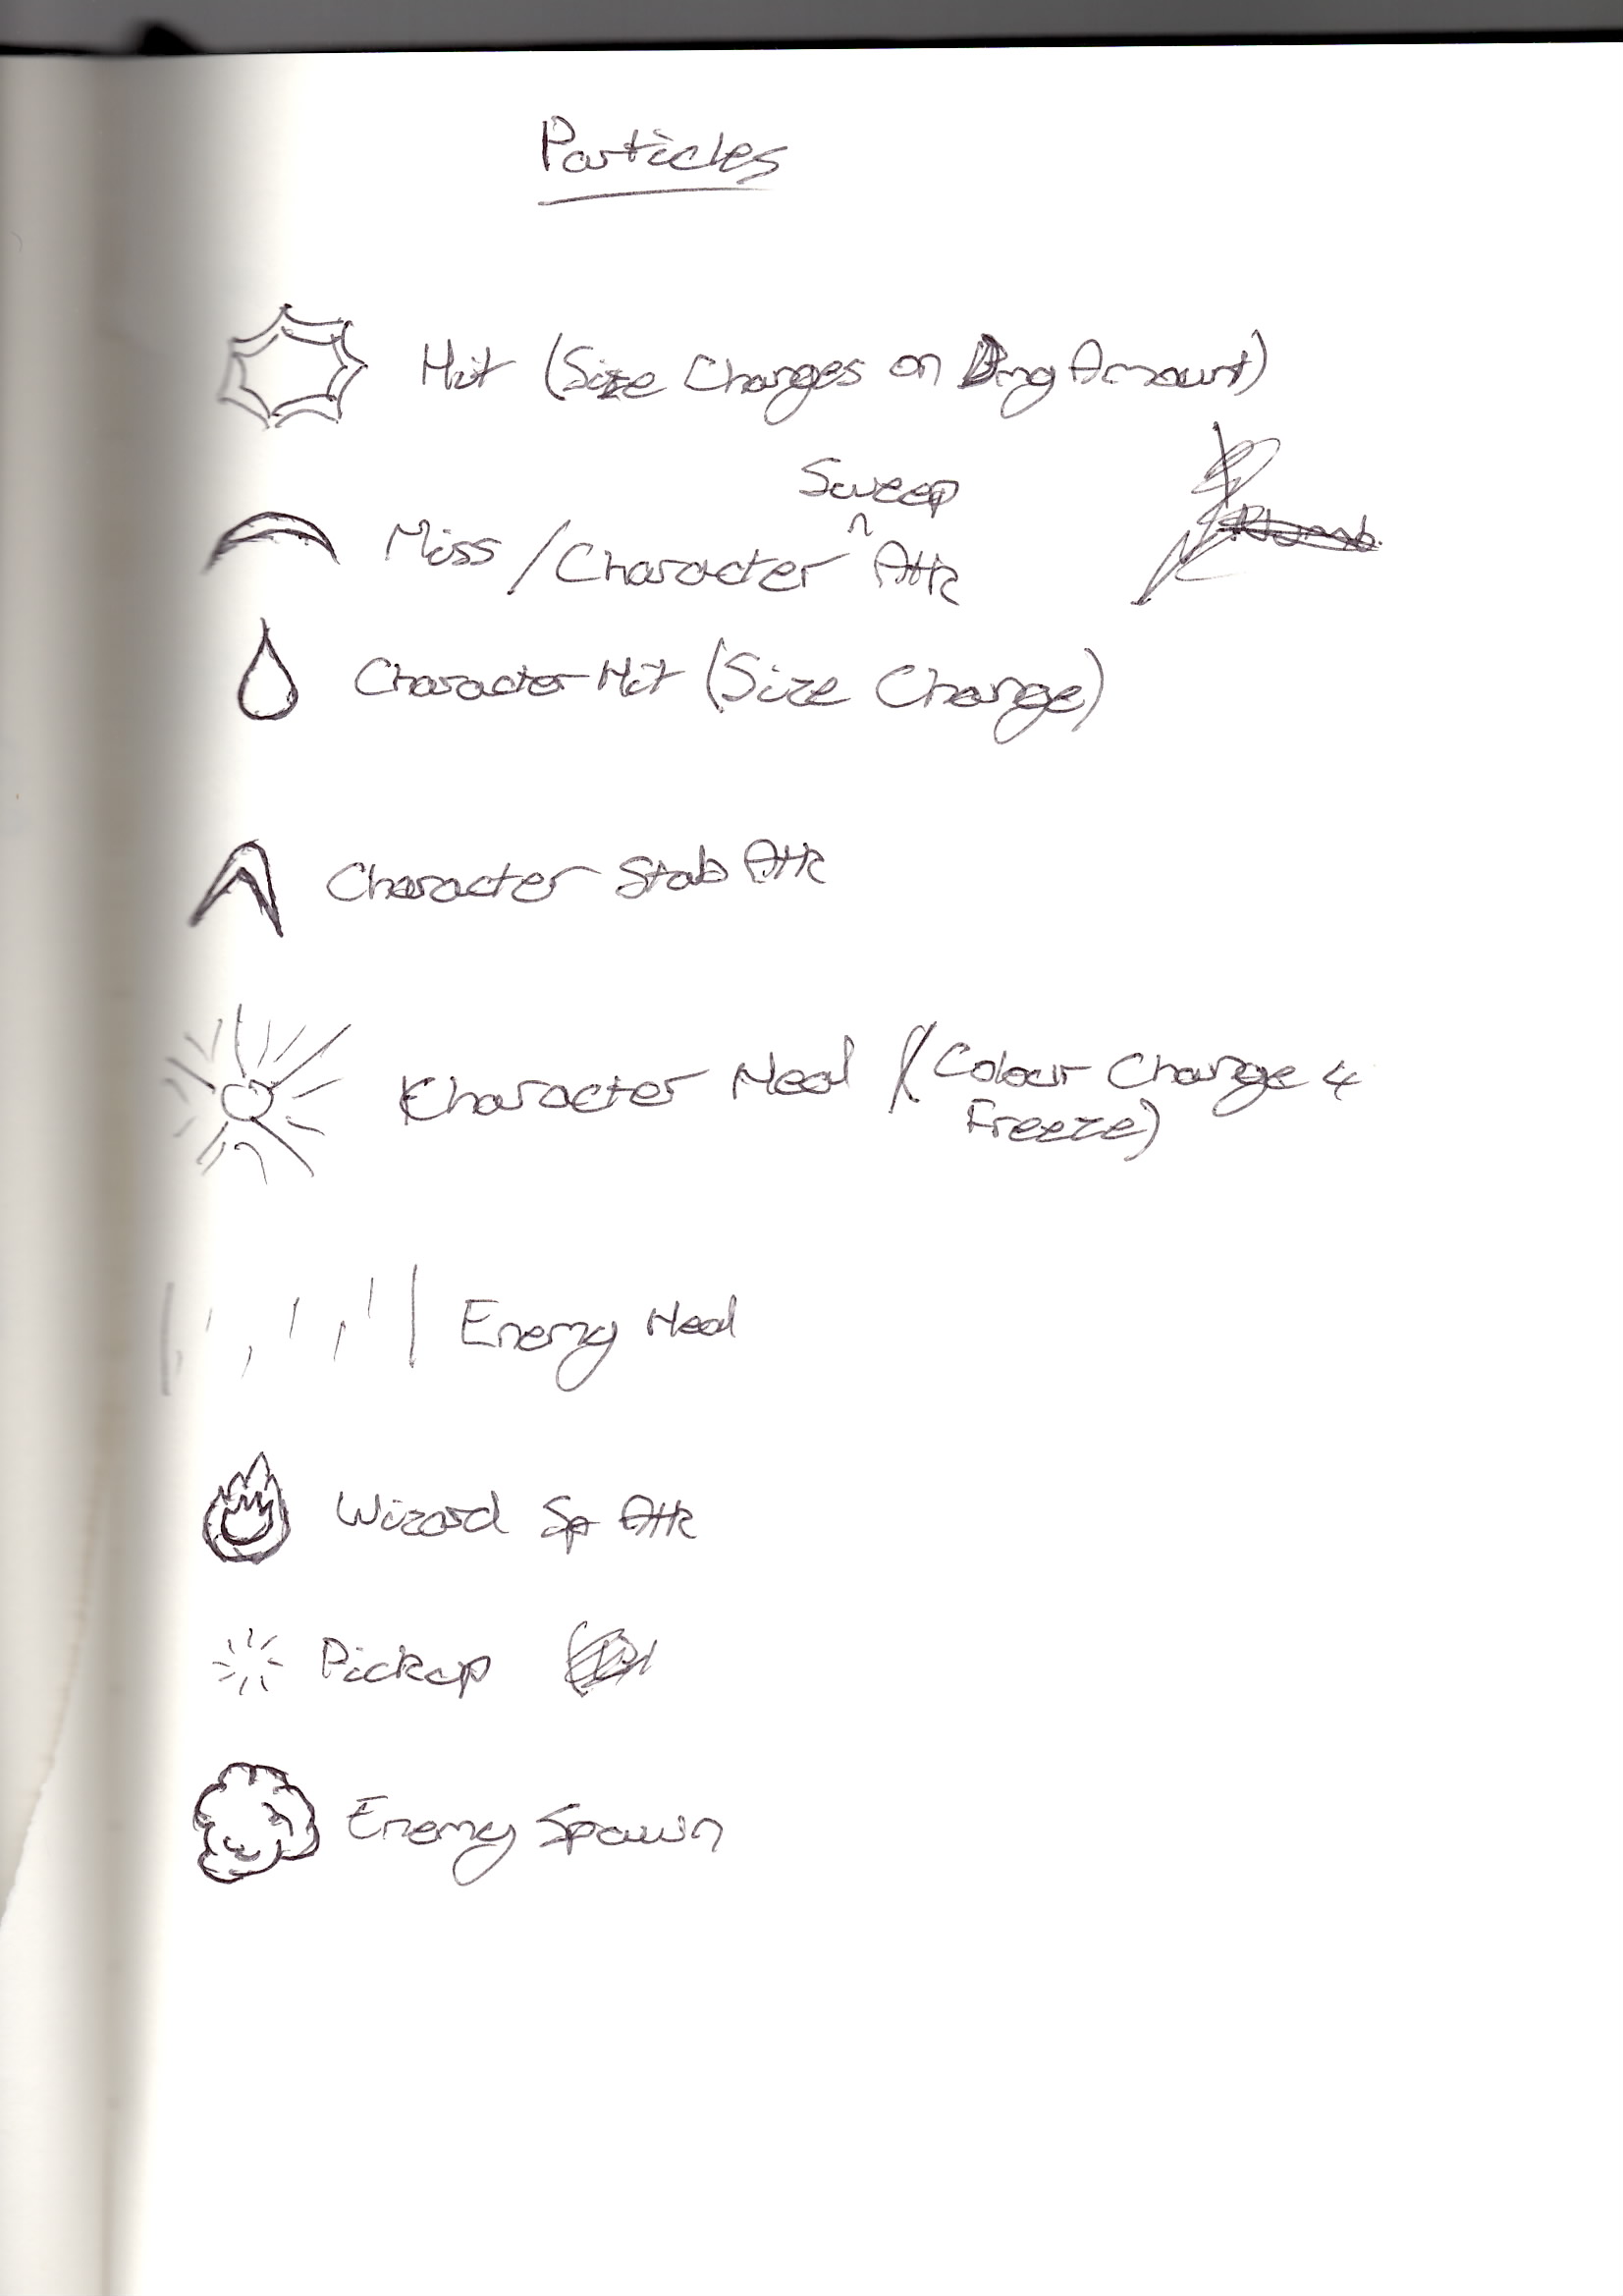 Particles
Hit (Size Changes on Dmg Amount)
Sweep
Miss / Character ^ Attk
Character Hit (Size Change)
Character Stab Attk
Character Heal (Colour Change &
Freeze)
Enemy Heal
Wizard Sp Attk
Pickup
Enemy Spawn